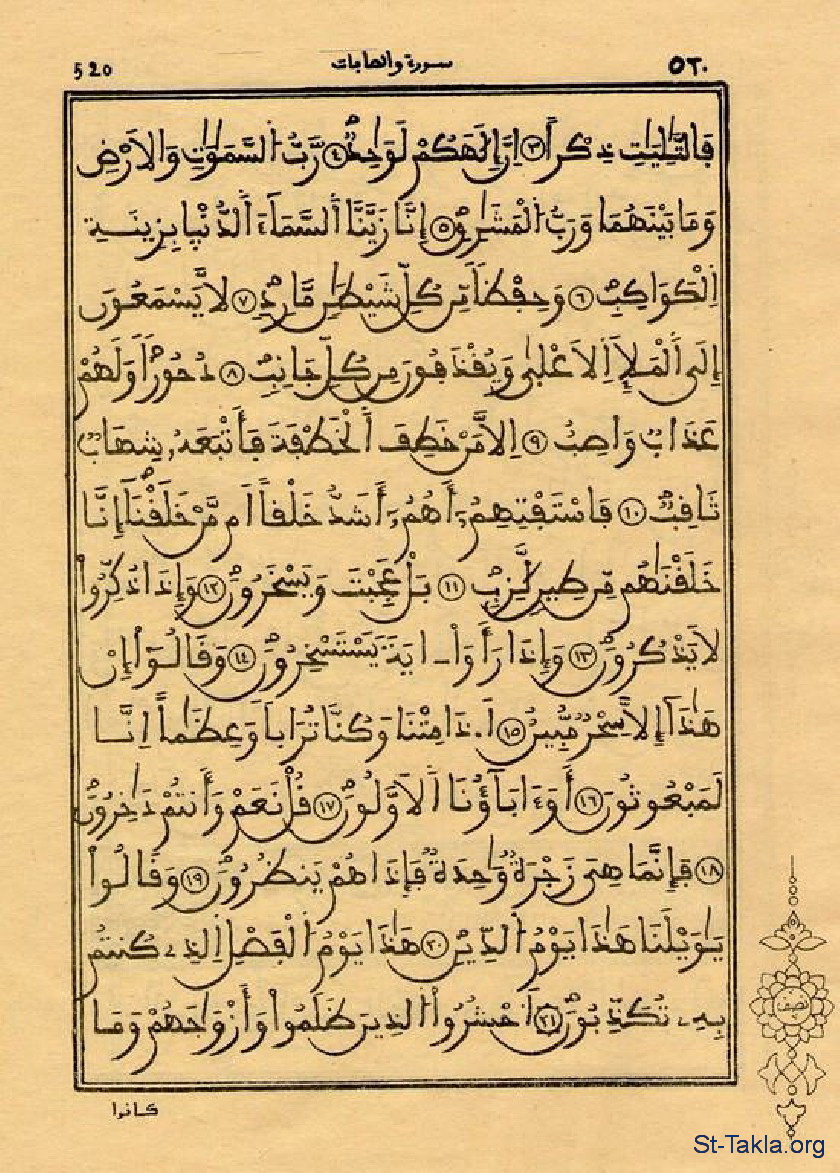 ٥٢٠ سورة والصافات 520
فَالتَّٰلِيَٰتِ ذِكْراً ٣ اِنَّ إِلَٰهَكُمْ لَوَٰحِدٌ ٤ رَّبُّ السَّمَٰوَٰتِ وَالَارْضِ
وَمَا بَيْنَهُمَا وَرَبُّ الْمَشَٰرِقِ ٥ إِنَّا زَيَّنَّا السَّمَآءَ الدُّنْيَا بِزِينَةِ
اِلْكَوَاكِبِ ٦ وَحِفْظاً مِّن كُلِّ شَيْطَٰنٍ مَّارِدٍ ٧ لَّا يَسْمَعُونَ
إِلَى اَلْمَلَإِ اِلَاعْلَىٰ وَيُقْذَفُونَ مِن كُلِّ جَانِبٍ ٨ دُحُوراً وَلَهُمْ
عَذَابٌ وَاصِبٌ ٩ اِلَّا مَنْ خَطِفَ اَلْخَطْفَةَ فَأَتْبَعَهُۥ شِهَابٌ
ثَاقِبٌ ١٠ فَاسْتَفْتِهِمُۥٓ أَهُمُۥٓ أَشَدُّ خَلْقاً اَم مَّنْ خَلَقْنَآ إِنَّا
خَلَقْنَٰهُم مِّن طِينٍ لَّازِبٍ ١١ بَلْ عَجِبْتَ وَيَسْخَرُونَ ١٢ وَإِذَا ذُكِّرُواْ
لَا يَذْكُرُونَ ١٣ وَإِذَا رَأَوَاْ ـ ايَةً يَسْتَسْخِرُونَ ١٤ وَقَالُوٓاْ إِنْ
هَٰذَآ إِلَّا سِحْرٌ مُّبِينٌ ١٥ اَ۟ذَا مِتْنَا وَكُنَّا تُرَاباً وَعِظَٰماً اِنَّا
لَمَبْعُوثُونَ ١٦ أَوَءَابَآؤُنَا اَلَاوَّلُونَ ١٧ قُلْ نَعَمْ وَأَنتُمْ دَٰخِرُونَ
١٨ فَإِنَّمَا هِىَ زَجْرَةٌ وَٰحِدَةٌ فَإِذَا هُمْ يَنظُرُونَ ١٩ وَقَالُواْ
يَٰوَيْلَنَا هَٰذَا يَوْمُ الدِّينِ ٢٠ هَٰذَا يَوْمُ الْفَصْلِ اِلذِے كُنتُم
بِهِۦ تُكَذِّبُونَ ٢١ اَحْشُرُواْ الذِينَ ظَلَمُواْ وَأَزْوَٰجَهُمْ وَمَا
كانوا
نصف
St-Takla.org